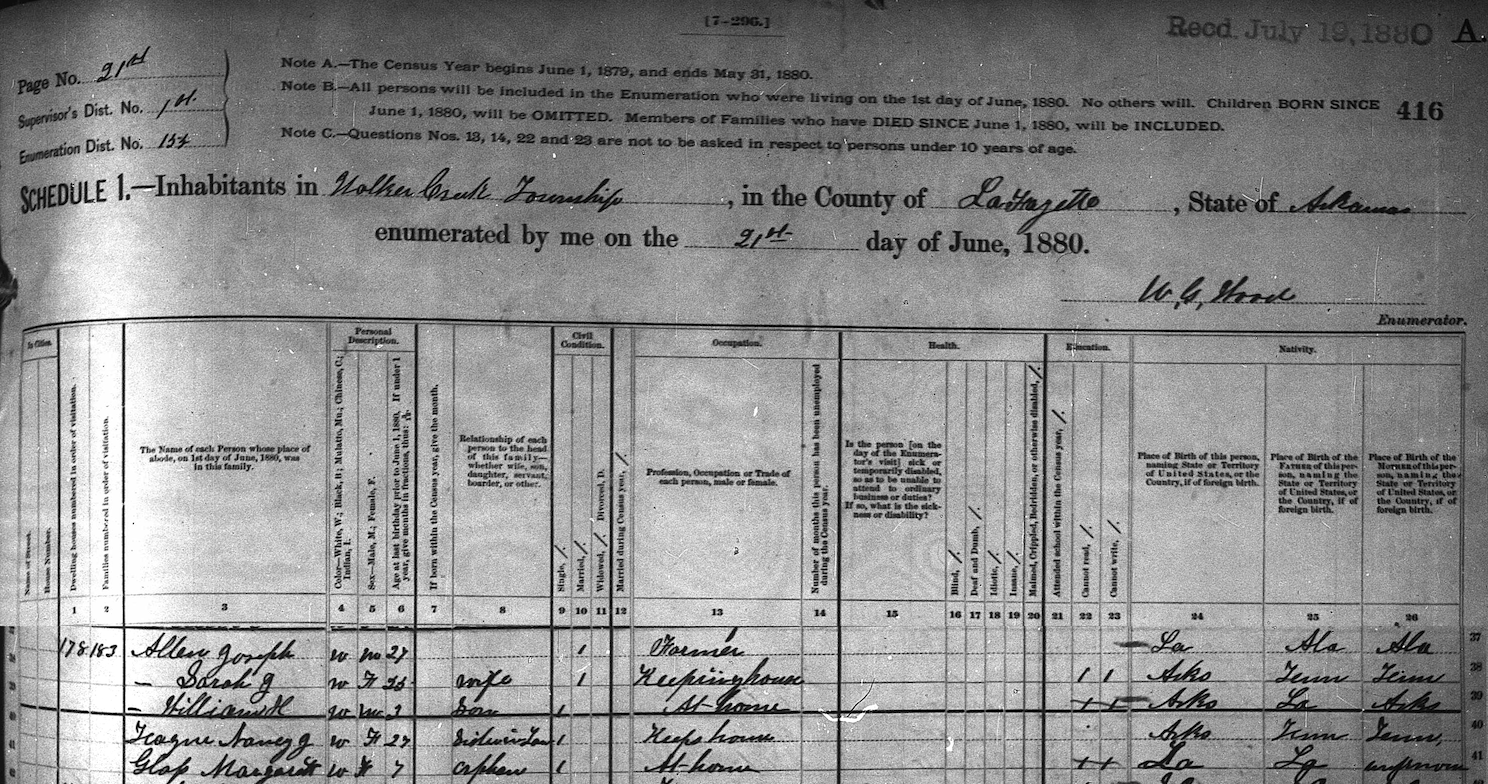 [7-296.]
Recd. July 19, 1880 A.
Page No. 21st
Supervisor's Dist. No. 1st.
Enumeration Dist. No.
Note A.—The Census Year begins June 1, 1879, and ends May 31, 1880.
Note B.—All persons will be included in the Enumeration who were living on the 1st day of June, 1880. No others will. Children BORN SINCE
June 1, 1880, will be OMITTED. Members of Families who have DIED SINCE June 1, 1880, will be INCLUDED.
Note C.—Questions Nos. 13, 14, 22 and 23 are not to be asked in respect to persons under 10 years of age.
416
SCHEDULE 1.—Inhabitants in Walker Creek Township, in the County of LaFayette, State of Arkansas
enumerated by me on the 21st day of June, 1880.
W. G. Wood
Enumerator.
In Cities.
Personal Description.
Civil Condition.
Occupation.
Health.
Education.
Nativity.
Name of Street.
House Number.
Dwelling houses numbered in order of visitation.
Families numbered in order of visitation.
The Name of each Person whose place of abode, on 1st day of June, 1880, was in this family.
Color—White, W.; Black, B.; Mulatto, Mu.; Chinese, C.; Indian, I.
Sex—Male, M.; Female, F.
Age at last birthday prior to June 1, 1880. If under 1 year, give months in fractions, thus:
If born within the Census year, give the month.
Relationship of each person to the head of this family—whether wife, son, daughter, servant, boarder, or other.
Single, /.
Married, /.
Widowed, /. Divorced, D.
Married during Census year, /.
Profession, Occupation or Trade of each person, male or female.
Number of months this person has been unemployed during the Census year.
Is the person [on the day of the Enumerator's visit] sick or temporarily disabled, so as to be unable to attend to ordinary business or duties? If so, what is the sickness or disability?
Blind, /.
Deaf and Dumb, /.
Idiotic, /.
Insane, /.
Maimed, Crippled, Bedridden, or otherwise disabled, /.
Attended school within the Census year, /.
Cannot read, /.
Cannot write, /.
Place of Birth of this person, naming State or Territory of United States, or the Country, if of foreign birth.
Place of Birth of the FATHER of this person, naming the State or Territory of United States, or the Country, if of foreign birth.
Place of Birth of the MOTHER of this person, naming the State or Territory of United States, or the Country, if of foreign birth.
1 2 3 4 5 6 7 8 9 10 11 12 13 14 15 16 17 18 19 20 21 22 23 24 25 26
178 183 Allen Joseph W M 27 / Farmer La Ala Ala 37
— Sarah J W F wife / Keeping house / / Arks Tenn Tenn 38
— William H W M 3 Son / At home Arks La Arks 39
Teague Nancy J W F 27 Sister in Law / Keeps house Arks Tenn Tenn, 40
Glass Margaret W F 7 orphan / At home La La unknown 41